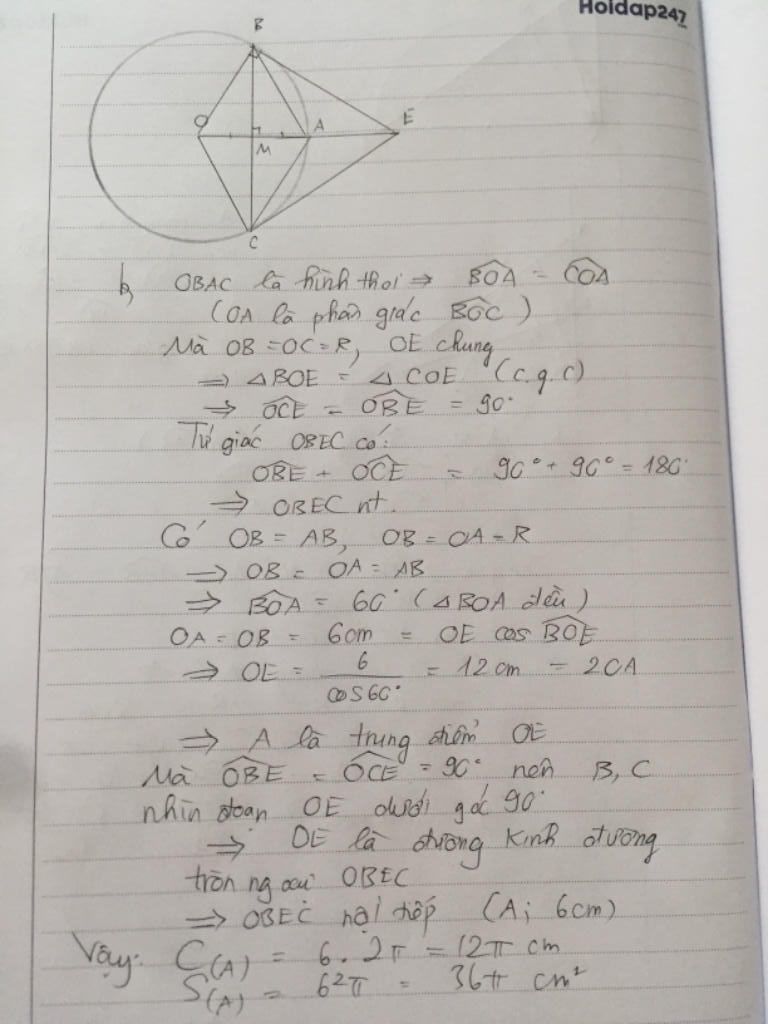 Hoidap247
B
O
A
E
M
C
b, OBAC là hình thoi ⇒ \widehat{BOA} = \widehat{COA}
(OA là phân giác \widehat{BOC})
Mà OB = OC = R, OE chung
⇒ △BOE = △COE (c.g.c)
⇒ \widehat{OCE} = \widehat{OBE} = 90°
Tứ giác OBEC có:
\widehat{OBE} + \widehat{OCE} = 90° + 90° = 180°
⇒ OBEC nt.
Có OB = AB, OB = OA = R
⇒ OB = OA = AB
⇒ \widehat{BOA} = 60° (△BOA đều)
OA = OB = 6cm = OE cos \widehat{BOE}
⇒ OE = \frac{6}{cos60°} = 12cm = 2OA
⇒ A là trung điểm OE
Mà \widehat{OBE} = \widehat{OCE} = 90° nên B, C
nhìn đoạn OE dưới góc 90°
⇒ OE là đường kính đường
tròn ngoại OBEC
⇒ OBEC nội tiếp (A; 6cm)
Vậy: C(A) = 6.2π = 12π cm
S(A) = 6²π = 36π cm²